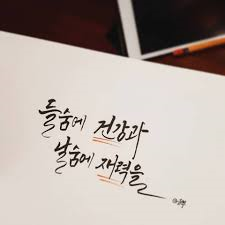 들숨에 건강과
날숨에 재력을